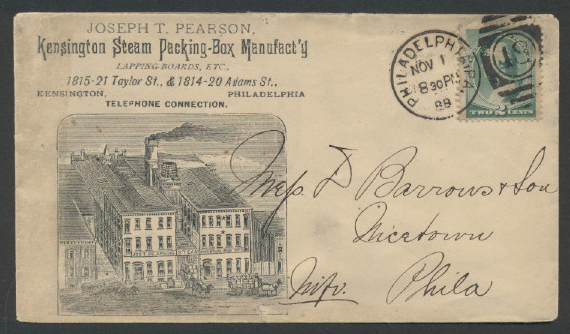 JOSEPH T. PEARSON,
Kensington Steam Packing-Box Manufact'y
LAPPING-BOARDS, ETC.,
1815-21 Taylor St., & 1814-20 Adams St.,
KENSINGTON, PHILADELPHIA
TELEPHONE CONNECTION.
PHILADELPHIA PA
NOV 1
830PM
88
TWO 2 CENTS
Mess D Barrows & Son
Nicetown
Phila